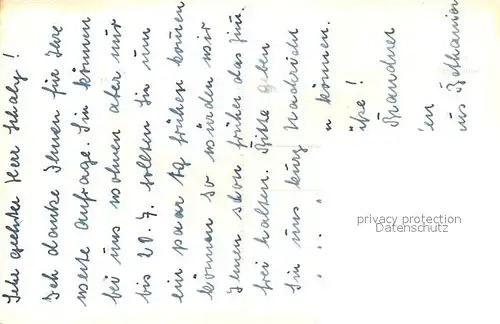 Sehr geehrter Herr
Ich danke Ihnen für Ihre
werte Anfrage. Sie können
bei uns wohnen aber nur
bis 20. 7. sollten Sie um
ein paar Tg früher kommen
können so würden wir
Ihnen schon früher das Zim.
frei halten. Bitte geben
Sie uns kurz Nachricht
können.
privacy protection
Datenschutz